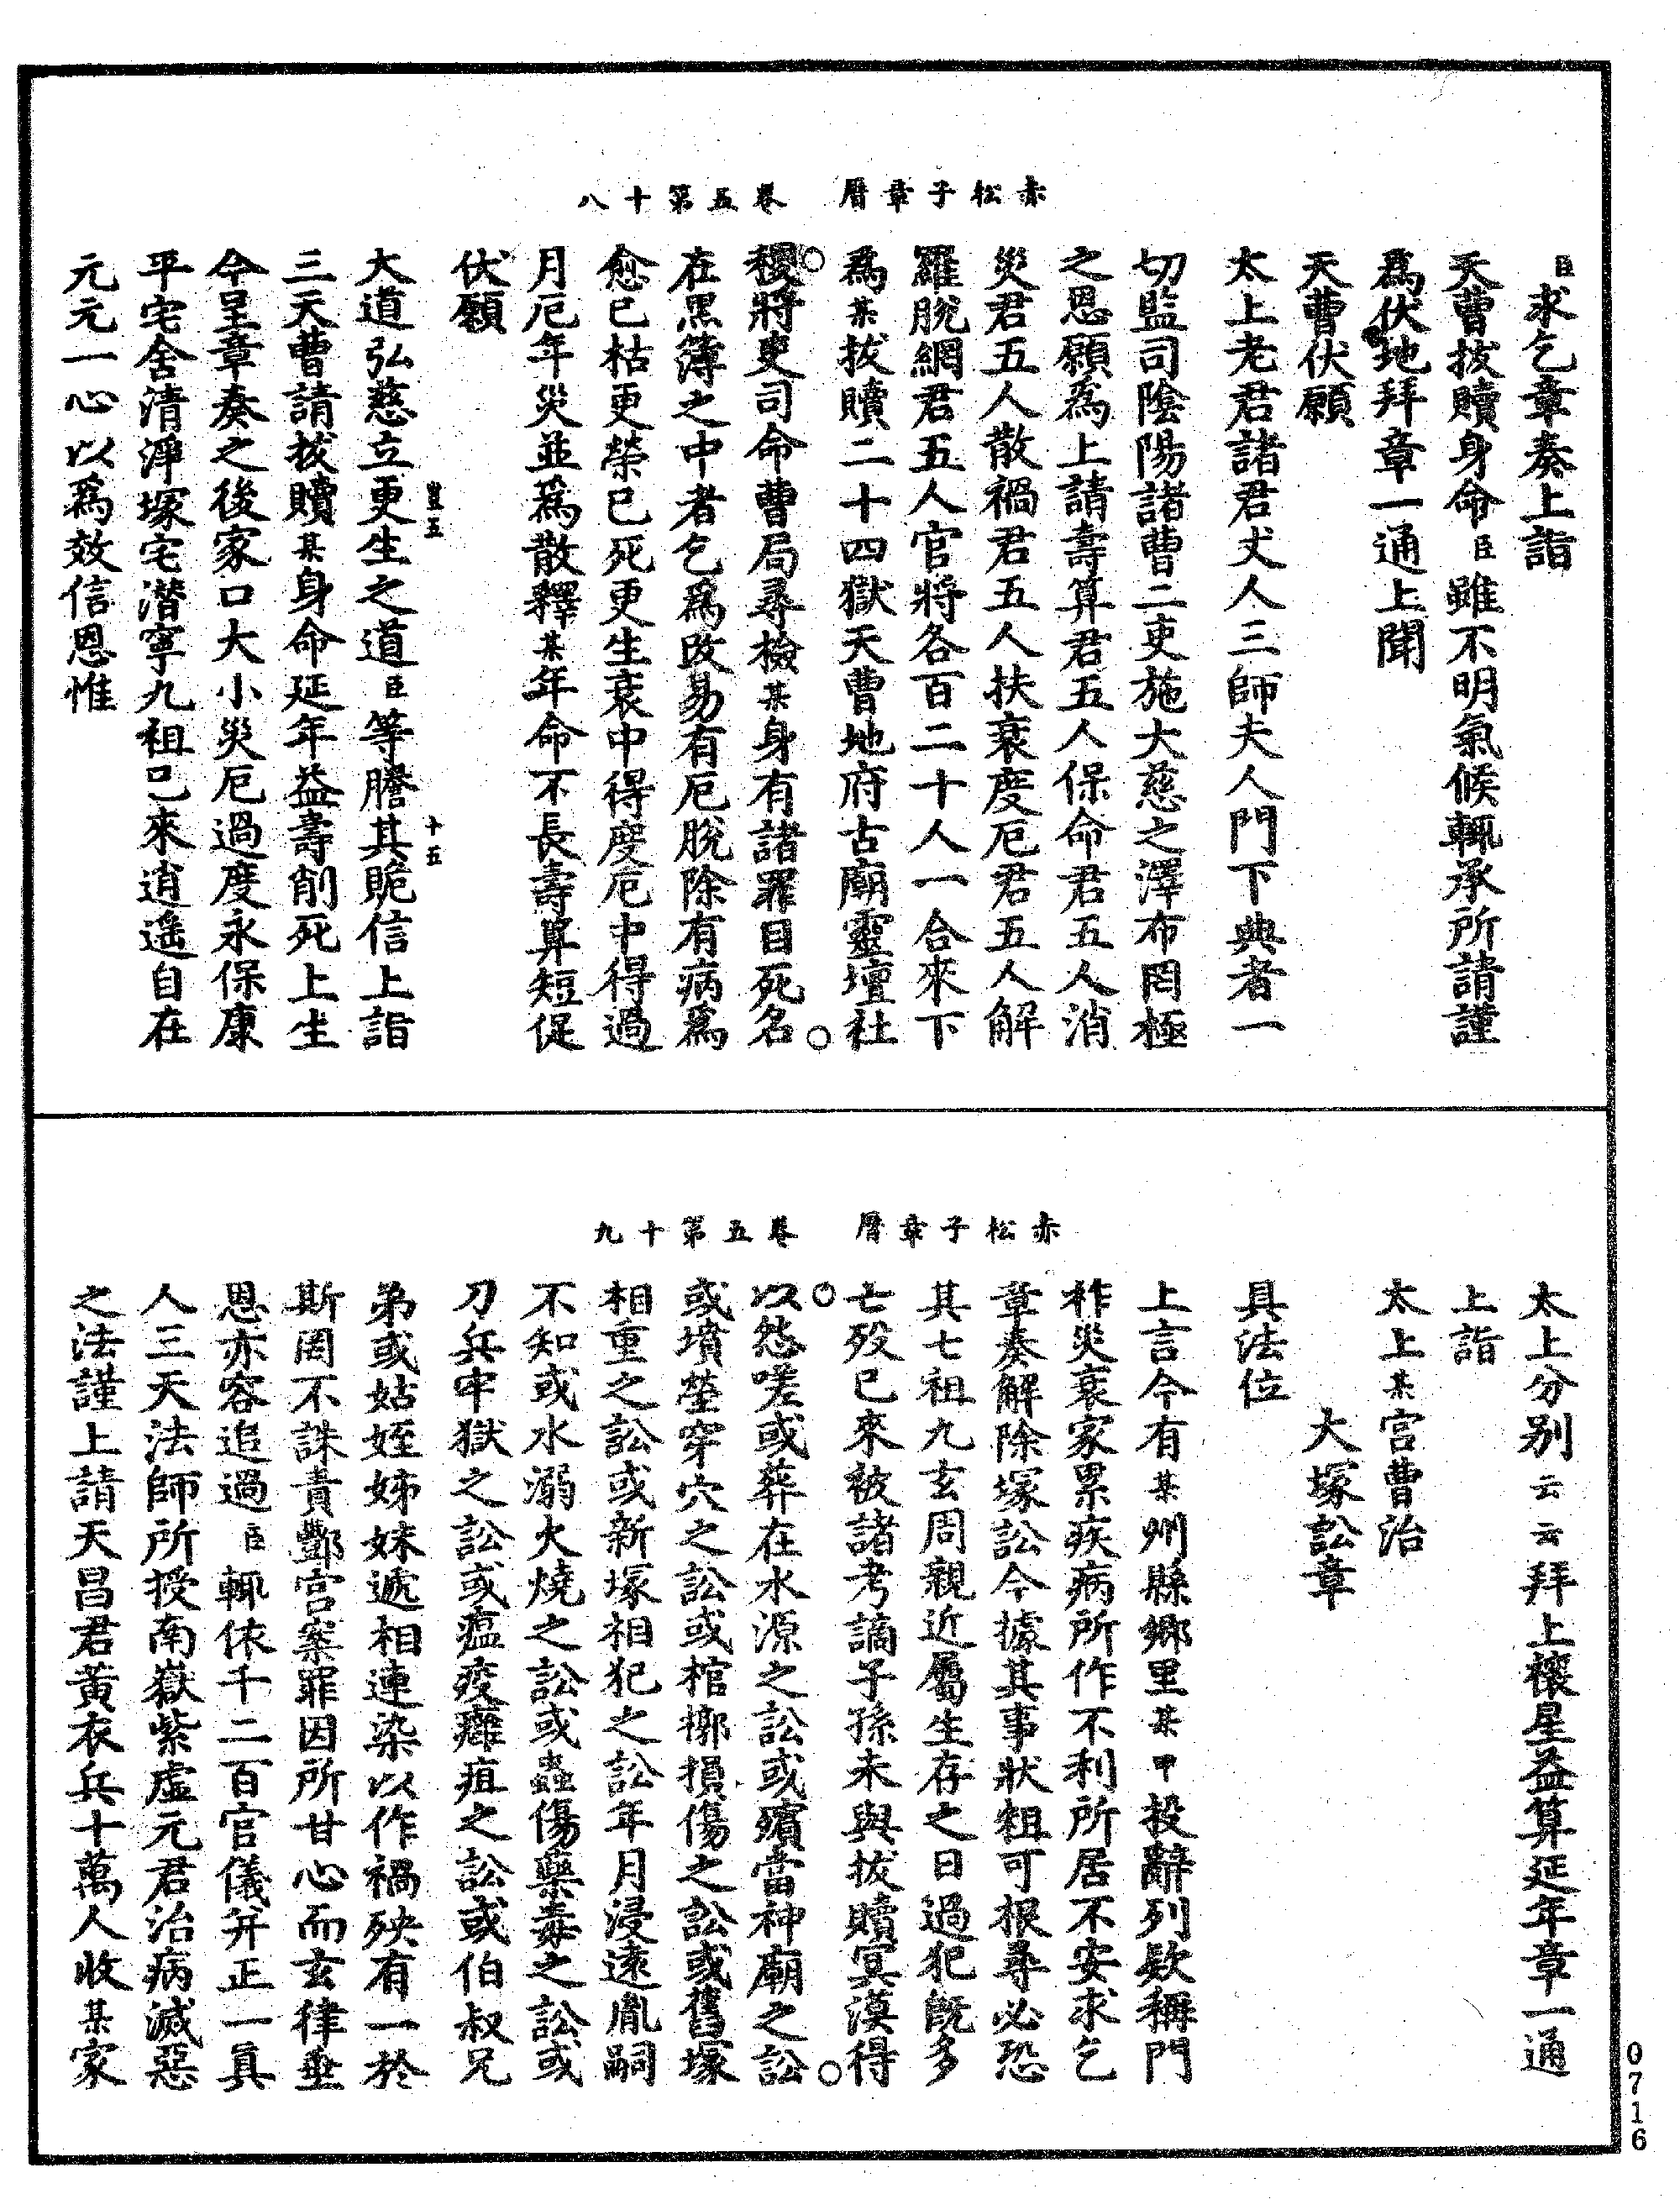 赤松子章曆 卷五第十八
臣求乞章奏上詣
天曹拔贖身命臣雖不明氣候輒承所請謹
爲伏地拜章一通上聞
天曹伏願
太上老君諸君丈人三師夫人門下典者一
切監司陰陽諸曹二吏施大慈之澤布罔極
之恩願爲上請壽算君五人保命君五人消
災君五人散禍君五人扶衰度厄君五人解
羅脫網君五人官將各百二十人一合來下
爲某拔贖二十四獄天曹地府古廟靈壇社
稷將吏司命曹局尋檢某身有諸罪目死名
在黑簿之中者乞爲改易有厄脫除有病爲
愈已枯更榮已死更生衰中得度厄中得過
月厄年災並爲散釋某年命不長壽算短促
伏願
豈五 十五
大道弘慈立更生之道臣等謄其脆信上詣
三天曹請拔贖某身命延年益壽削死上生
今呈章奏之後家口大小災厄過度永保康
平宅舍清淨塚宅潛寧九祖已來逍遙自在
元元一心以爲效信恩惟
赤松子章曆 卷五第十九
太上分別云云拜上禳星益算延年章一通
上詣
太上某宮曹治
大塚訟章
具法位
上言今有某州縣鄉里某甲投辭列款稱門
祚災衰家累疾病所作不利所居不安求乞
章奏解除塚訟今據其事狀粗可根尋必恐
其七祖九玄周親近屬生存之日過犯旣多
亡歿已來被諸考謫子孫未與拔贖冥漠得
以怨嗟或葬在水源之訟或殯當神廟之訟
或墳塋穿穴之訟或棺槨損傷之訟或舊塚
相重之訟或新塚相犯之訟年月浸遠胤嗣
不知或水溺火燒之訟或蟲傷藥毒之訟或
刀兵牢獄之訟或瘟疫癰疽之訟或伯叔兄
弟或姑姪姊妹遞相連染以作禍殃有一於
斯罔不誅責酆宮案罪因所甘心而玄律垂
恩亦容追過臣輒依千二百官儀并正一眞
人三天法師所授南嶽紫虛元君治病滅惡
之法謹上請天昌君黃衣兵十萬人收某家
0716